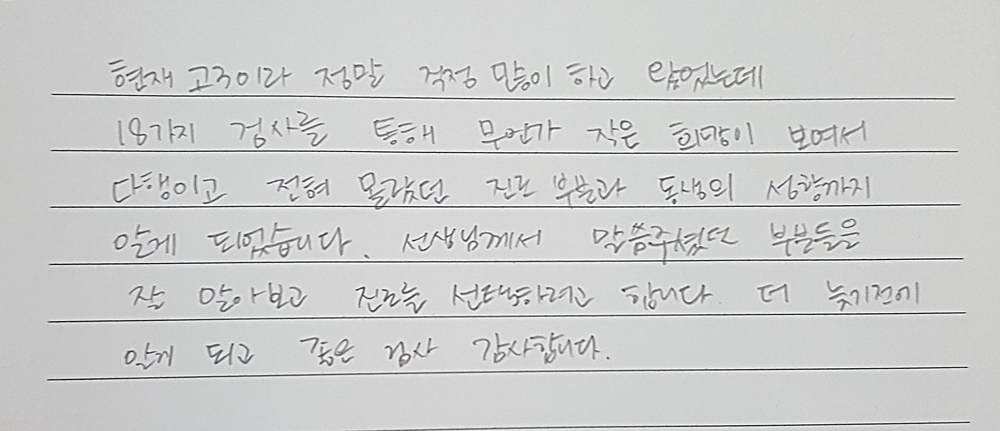 현재 고3이라 정말 걱정 많이 하고 있었는데
18가지 검사를 통해 무언가 작은 희망이 보여서
다행이고 전혀 몰랐던 진로 부분과 동생의 성향까지
알게 되었습니다. 선생님께서 말씀주셨던 부분들을
잘 알아보고 진로를 선택하려고 합니다. 더 늦기전에
알게 되고 좋은 검사 감사합니다.